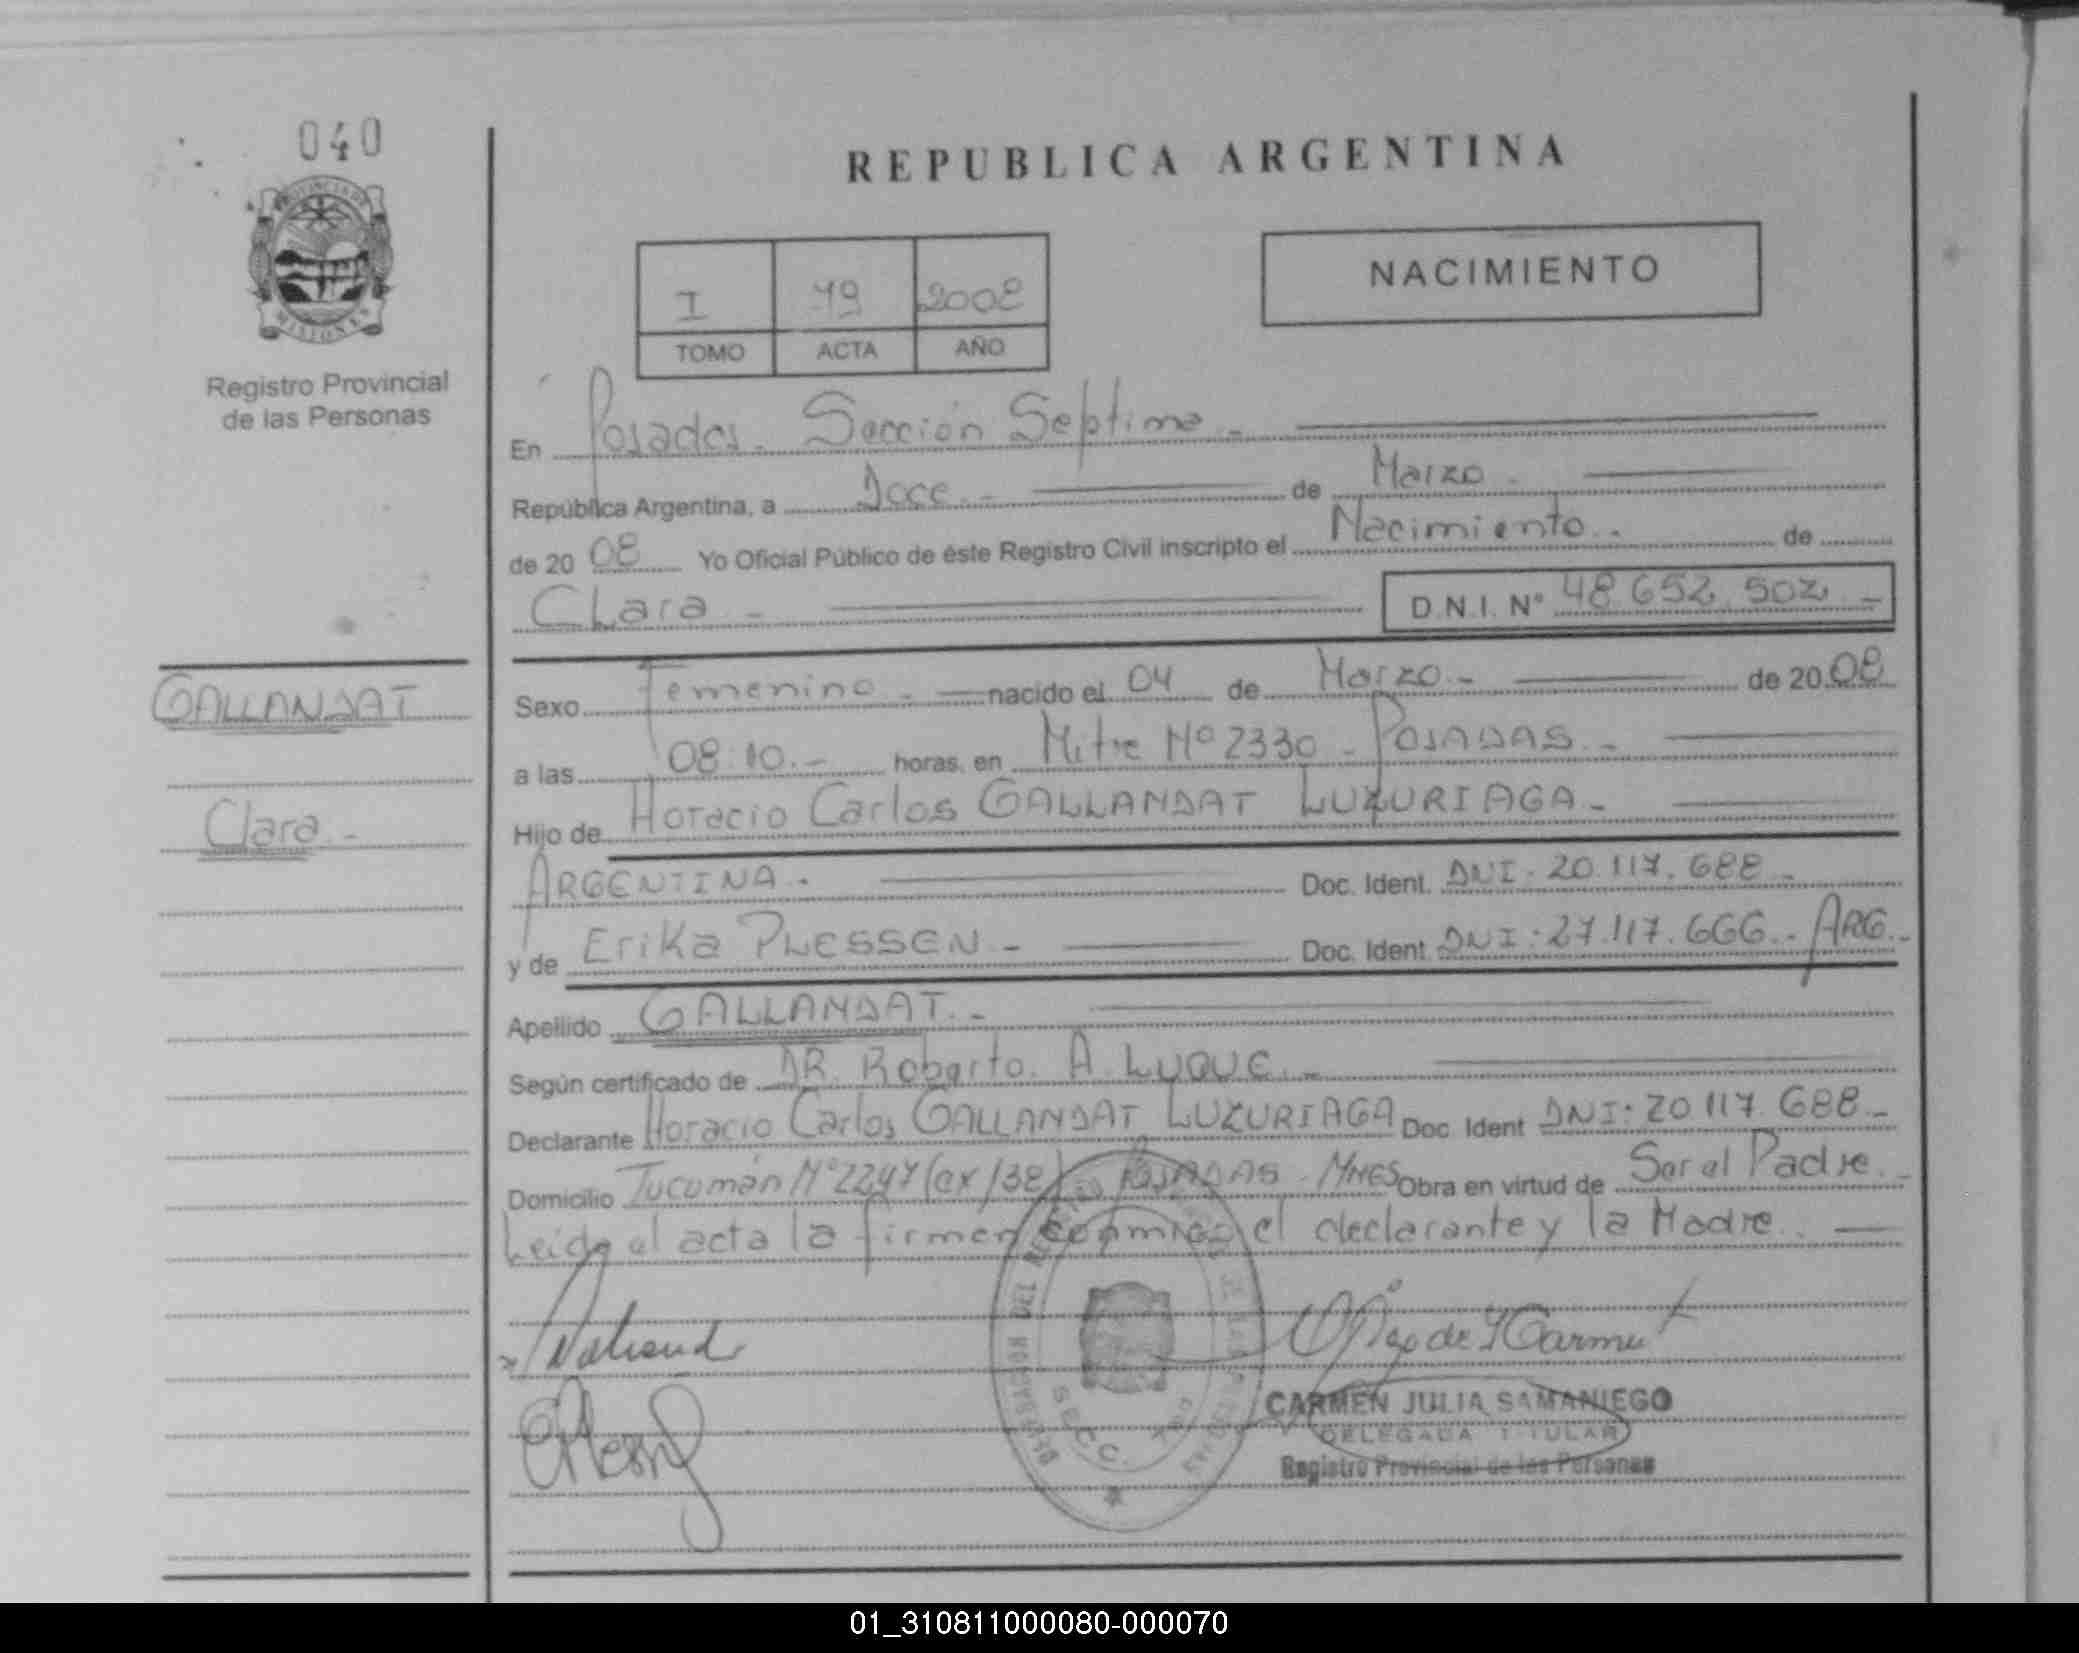 040
PROVINCIA DE
MISIONES
Registro Provincial
de las Personas
REPUBLICA ARGENTINA
I 79 2008
TOMO ACTA AÑO
NACIMIENTO
En Posadas. Sección Septima -
República Argentina, a Doce. - de Marzo -
de 20 08 Yo Oficial Público de éste Registro Civil inscripto el Nacimiento. - de
Clara - D.N.I. N° 48.652.502 -
GALLANDAT
Clara -
Sexo Femenino - nacido el 04 de Marzo - de 20 08
a las 08:10. - horas, en Mitre Nº 2330 - POSADAS. -
Hijo de Horacio Carlos GALLANDAT LUZURIAGA -
ARGENTINA - Doc. Ident. DNI: 20.117.688 -
y de Erika PLESSEN - Doc. Ident. DNI: 27.117.666. - ARG. -
Apellido GALLANDAT. -
Según certificado de DR. Roberto. A. LUQUE. -
Declarante Horacio Carlos GALLANDAT LUZURIAGA Doc. Ident DNI: 20.117.688 -
Domicilio Tucumán Nº 2247 (ex/38) POSADAS - MNES Obra en virtud de Ser el Padre. -
Leida el acta la firman conmigo el declarante y la Madre. -
REGISTRO DEL
SECC.
CARMEN JULIA SAMANIEGO
DELEGADA TITULAR
Registro Provincial de las Personas
01_310811000080-000070